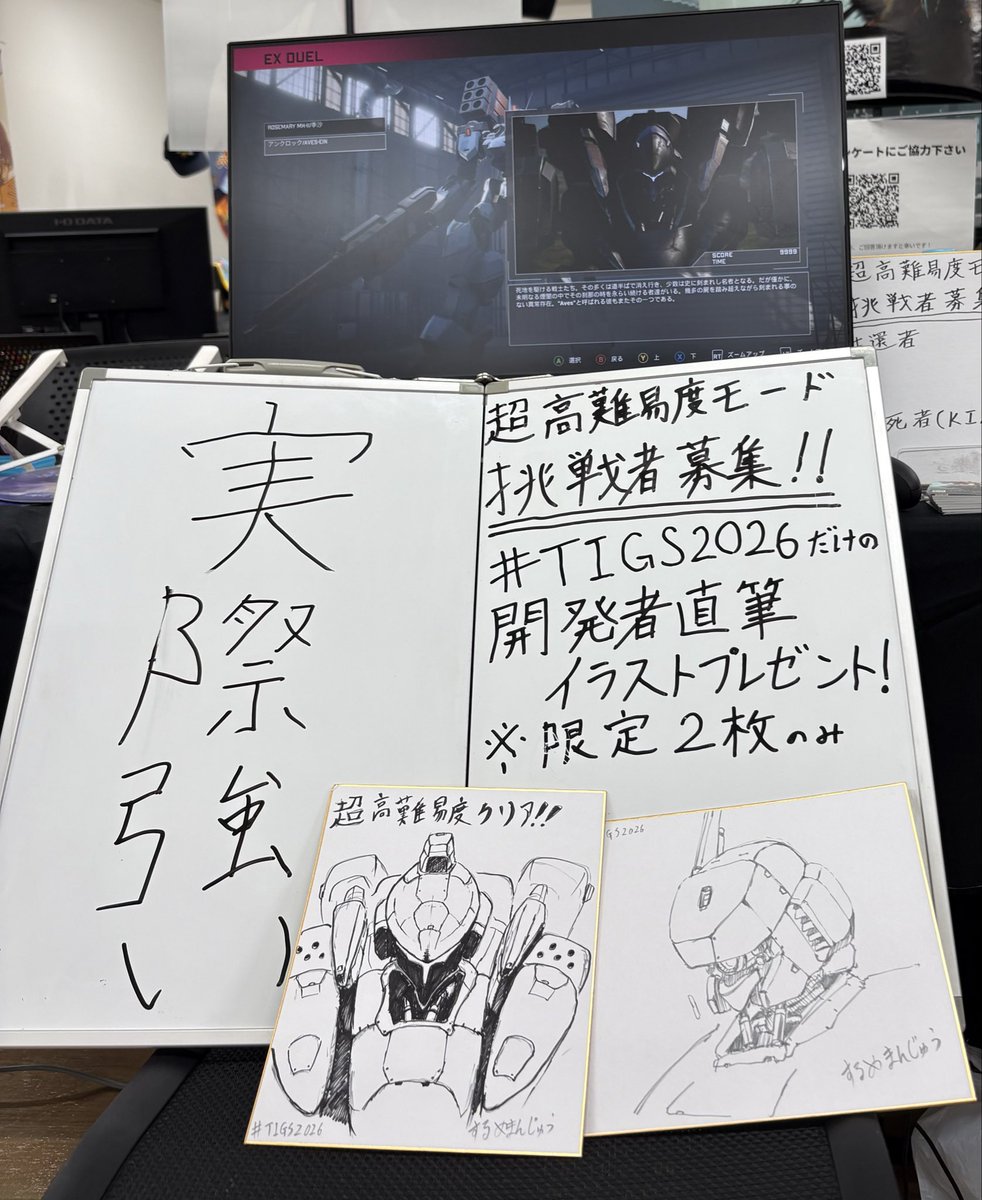 EX DUEL
アンクロック/AVES-EIN
SCORE 9999
TIME
死地を駆ける戦士たち。その多くは道半ばで消え行き、少数は史に刻まれし名者となる。だが僅かに、
未明なる煙闇の中でその刹那の時を永らい続ける者達がいる。幾多の屍を踏み越えながら刻まれる事の
ない異常存在。"Aves"と呼ばれる彼もまたその一つである。
A 選択 B 戻る Y 上 X 下 RT ズームアップ
I-O DATA
ケートにご協力下さい
ご回答頂けますと幸いです!
超高難易度モ
挑戦者募集
選者
死者(KI
実際強い
超高難易度モード
挑戦者募集!!
#TIGS2026だけの
開発者直筆
イラストプレゼント!
※限定2枚のみ
超高難易度クリア!!
#TIGS2026
するめまんじゅう
GS2026
するめまんじゅう